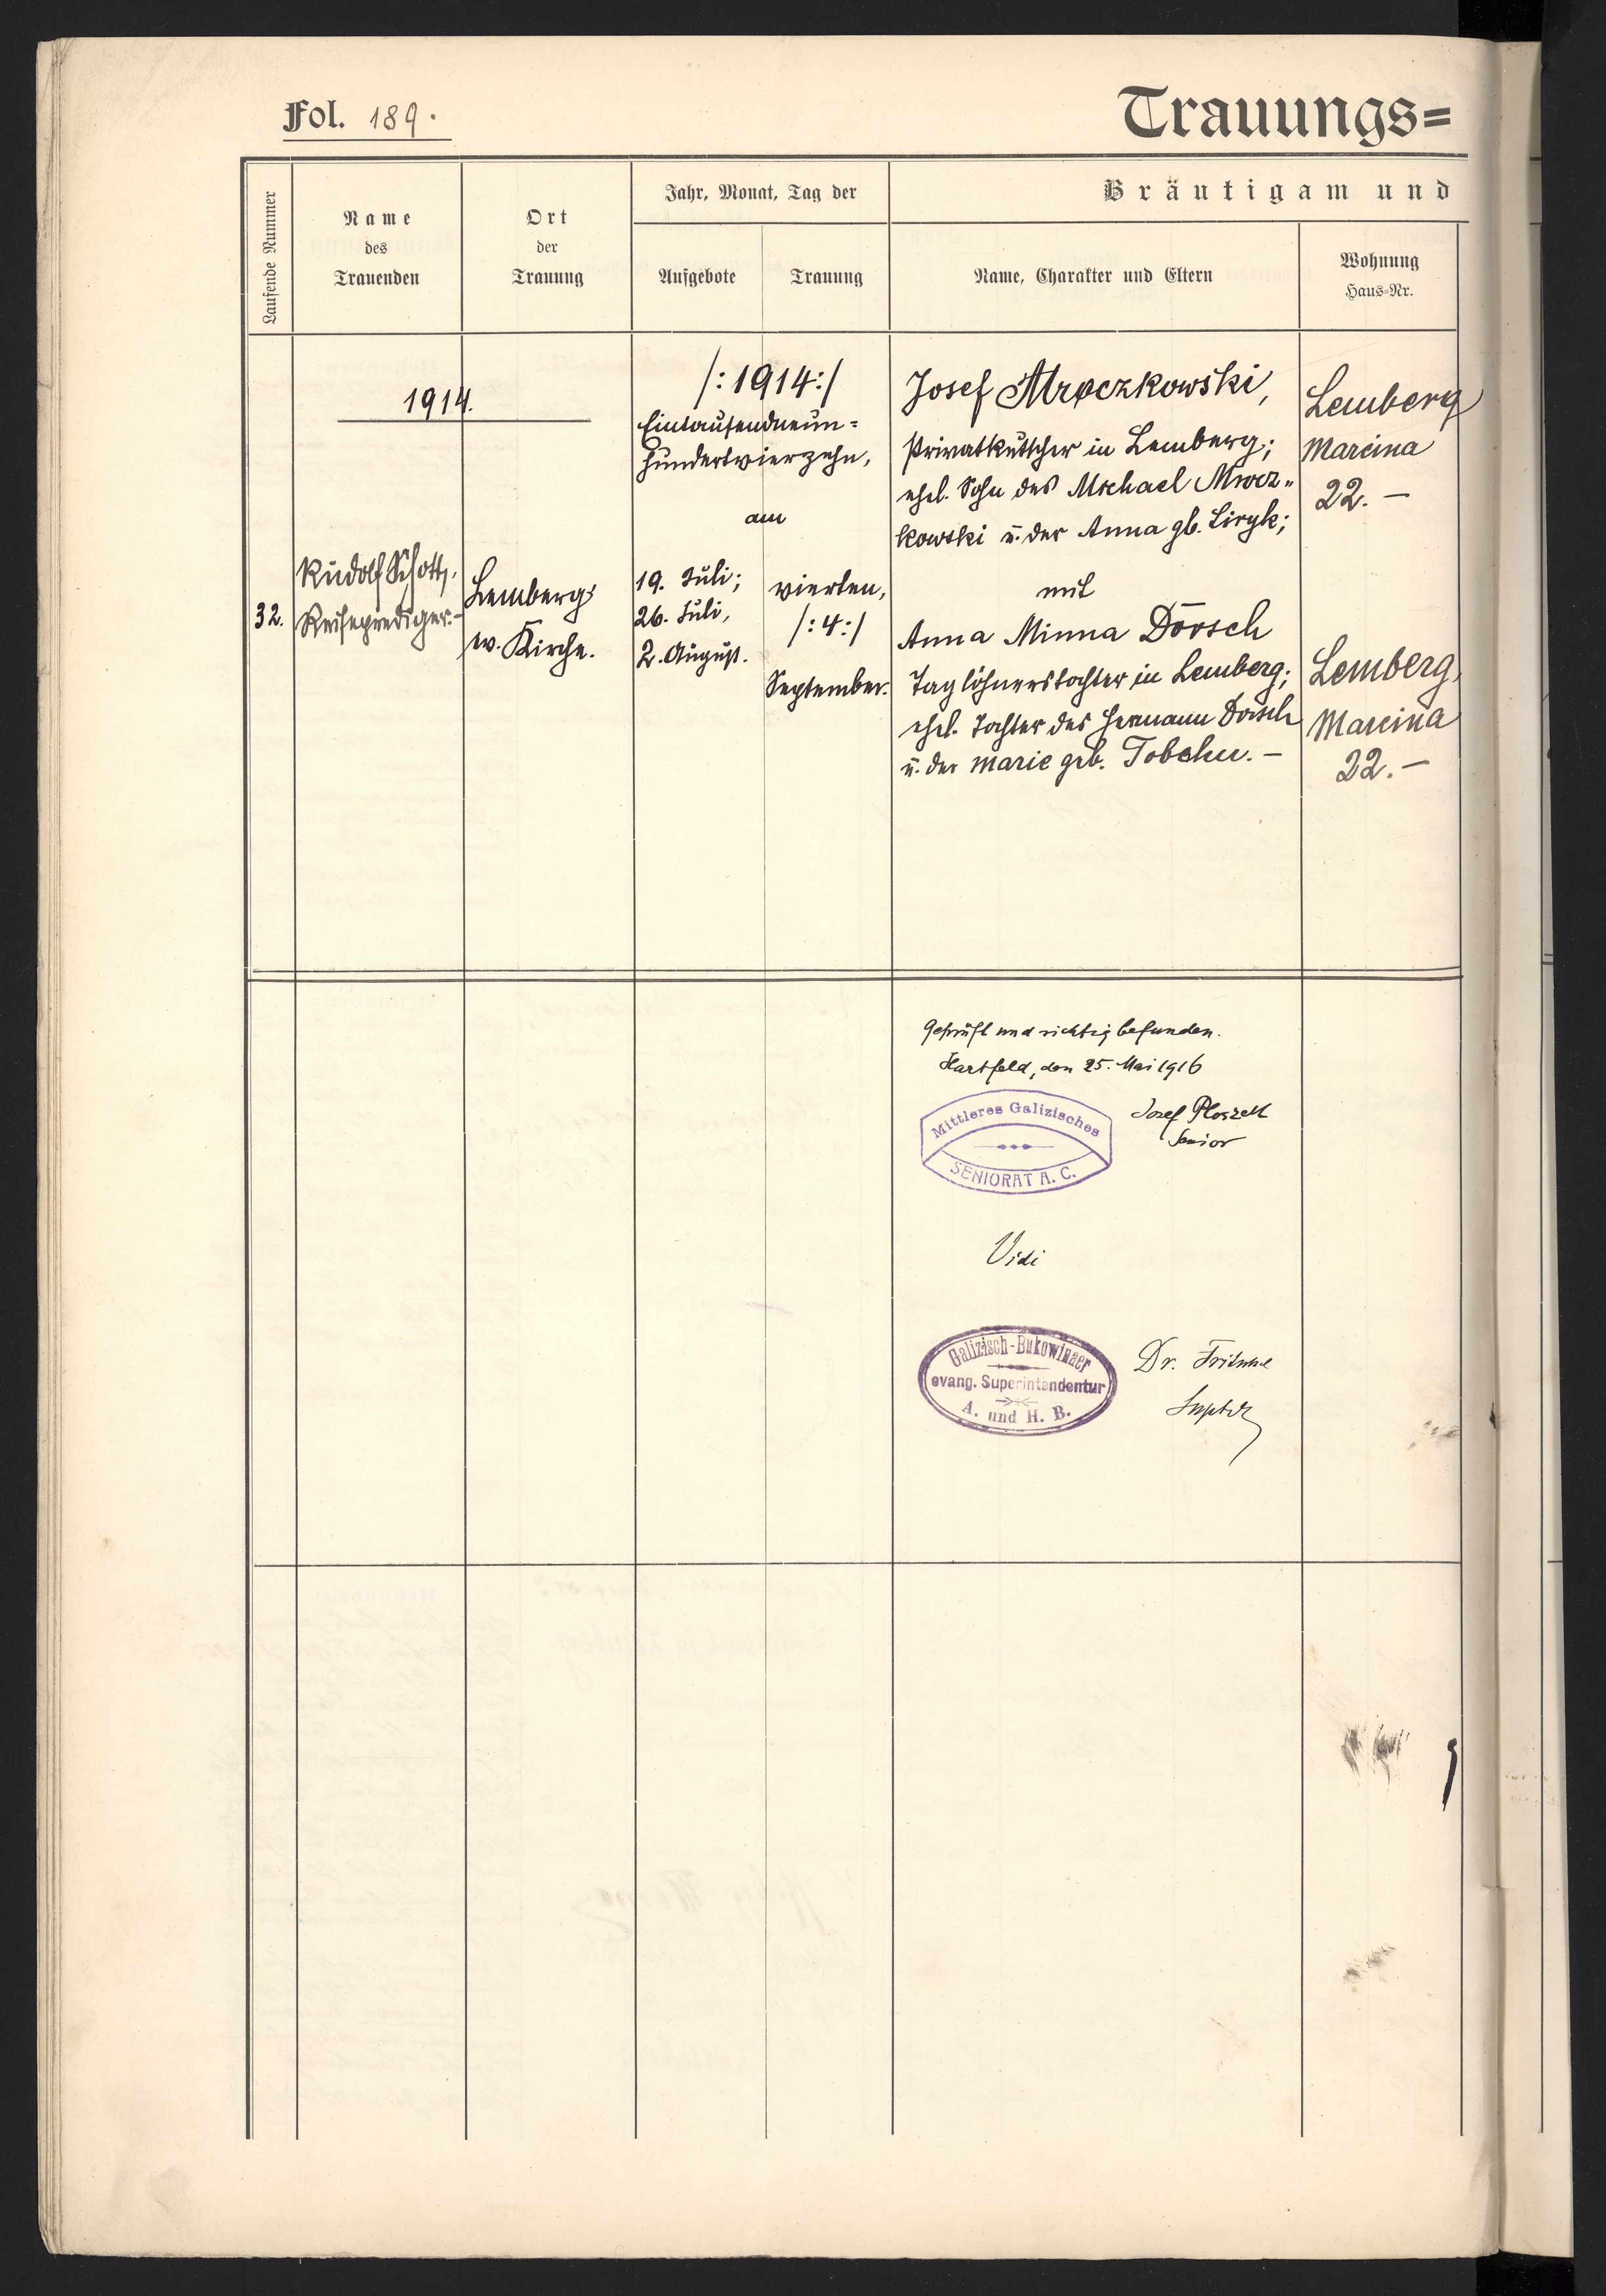 Fol. 189.
Trauungs=
Laufende Nummer
Name
des
Trauenden
Ort
der
Trauung
Jahr, Monat, Tag der
Aufgebote
Trauung
Bräutigam und
Name, Charakter und Eltern
Wohnung
Haus-Nr.
1914.
/:1914:/
Eintausendneun=
hundertvierzehn,
am
32.
Rudolf Schott,
Reiseprediger.-
Lemberg
ev. Kirche.
19. Juli;
26. Juli,
2. August.
vierten,
/:4:/
September.
Josef Mroczkowski,
Privatkutscher in Lemberg;
ehel. Sohn des Michael Mrocz„
kowski u. der Anna gb. Liryk;
mit
Anna Minna Dörsch
Taglöhnerstochter in Lemberg;
ehel. Tochter des Hermann Dörsch
u. der Marie geb. –
Lemberg
Marcina
22. –
Lemberg,
Marcina
22. –
Geprüft und richtig befunden.
Hartfeld, den 25. Mai 1916
Mittleres Galizisches
SENIORAT A. C.
Josef
Senior
Vidi
Galizisch-Bukowinaer
evang. Superintendentur
A. und H. B.
Dr. Fritsche